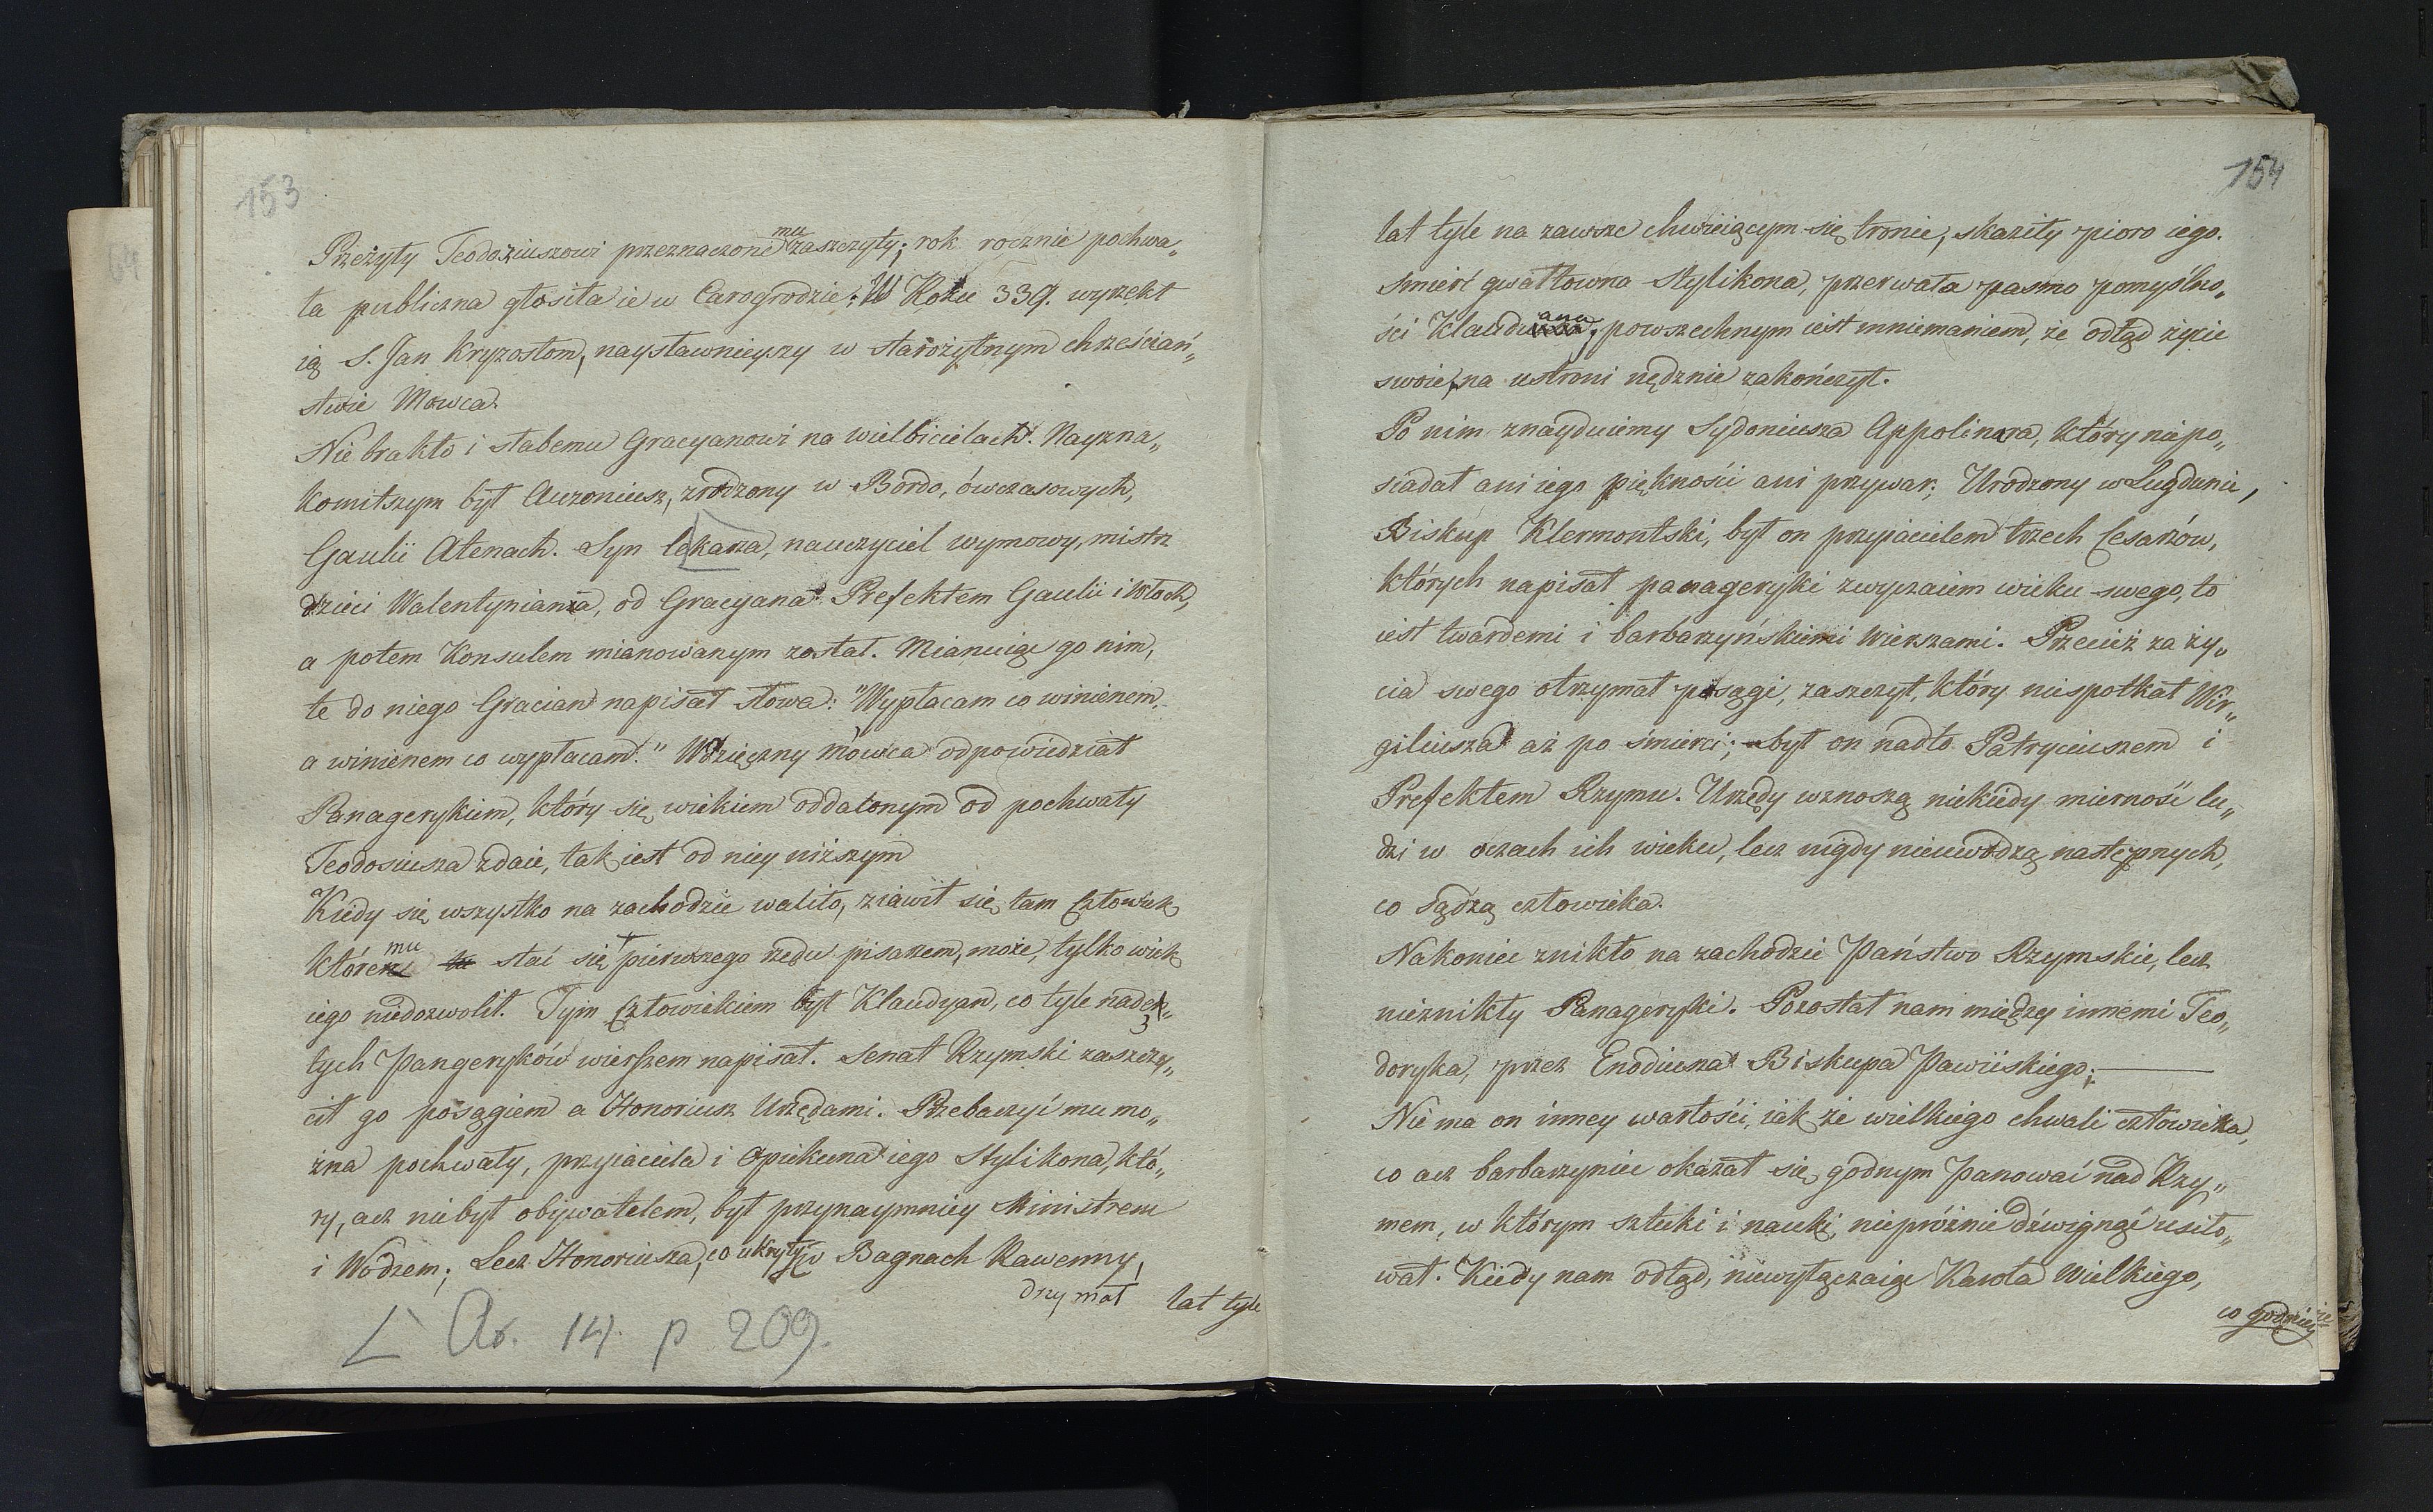 153
Przeżyły Teodoziuszowi przeznaczone mu zaszczyty; rok rocznie pochwa„
ła publiczna głosiła ie w Carogrodzie; W Roku 339. wyrzekł
ią S. Jan Kryzostom, naysławnieyszy w starożytnym chrześciań„
stwie Mowca.
Nie brakło i słabemu Gracyanowi na wielbicielach. Nayzna„
komitszym był Auzoniusz, zrodzony w Bordo, ówczasowych,
Gaulii Atenach. Syn lekarza, nauczyciel wymowy, mistrz
dzieci Walentyniana, od Gracyana Prefektem Gaulii i Włoch,
a potem Konsulem mianowanym został. Mianuiąc go nim,
te do niego Gracian napisał słowa: "Wypłacam co winienem,
a winienem co wypłacam." Wdzięczny mówca odpowiedział
Panagerykiem, który się wiekiem oddalonym od pochwały
Teodosiusza zdaie, tak iest od niey niższym
Kiedy się wszystko na zachodzie waliło, ziawił się tam Człowiek
któremu stać się pierwszego rzędu pisarzem, może, tylko wiek
iego niedozwolił. Tym Człowiekiem był Klaudyan, co tyle nadę„
tych Pangeryków wierszem napisał. Senat Rzymski zaszczy„
cił go posągiem a Honoriusz Urzędami. Przebaczyć mu mo„
żna pochwały, przyiaciela i opiekuna iego Stylikona, któ„
ry, acz niebył obywatelem, był przynaymniey Ministrem
i Wodzem; Lecz Honoriusza, co ukryty w Bagnach Rawenny,
drzymał lat tyle
L Ar. 14. p 209.
154
lat tyle na zawsze chwieiącym się tronie, skaziły pioro iego.
Smierć gwałtowna Stylikona, przerwała pasmo pomyślno„
ści Klaudiana; powszechnym iest mniemaniem, że odtąd życie
swoie, na ustroni nędznie zakończył.
Po nim znayduiemy Sydoniusza Appolinara, który niepo„
siadał ani iego piękności ani przywar; Urodzony w Lugdunie,
Biskup Klermontski, był on przyiacielem trzech Cesarzów,
których napisał panageryki zwyczaiem wieku swego, to
iest twardemi i barbarzyńskiemi Wierszami. Przecież za ży„
cia swego otrzymał posągi, zaszczyt, który niespotkał Wir„
giliusza aż po śmierci; był on nadto Patryciuszem i
Prefektem Rzymu. Urzędy wznoszą niekiedy mierność lu„
dzi w oczach ich wieku, lecz nigdy nieuwodzą następnych,
co sądzą człowieka.
Nakoniec znikło na zachodzie Państwo Rzymskie, lecz
nieznikły Panageryki. Pozostał nam między innemi Teo„
doryka, przez Enodiusza Biskupa Pawiiskiego;
Nie ma on inney wartości, iak że wielkiego chwali człowieka,
co acz barbarzyniec okazał się godnym Panować nad Rzy„
mem, w którym sztuki i nauki, niepróżnie dźwignąć usiło„
wał. Kiedy nam odtąd, niewyłączaiąc Karola Wielkiego,
co godniey